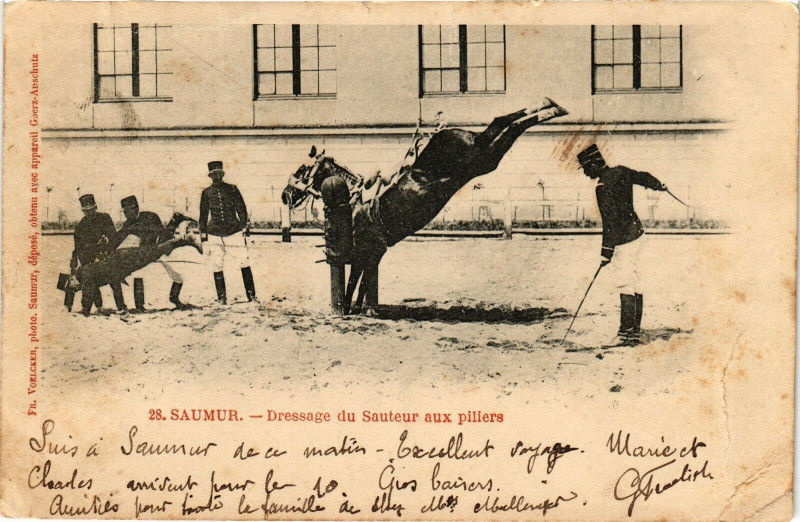 Fr. Voelcker, photo. Saumur, déposé, obtenu avec appareil Goerz-Anschutz
28. SAUMUR. — Dressage du Sauteur aux piliers
Suis à Saumur de ce matin - Excellent voyage. Marie et
Charles arrivent pour le 10 Gros baisers.
Amitiés pour toute la famille de chez Mrs